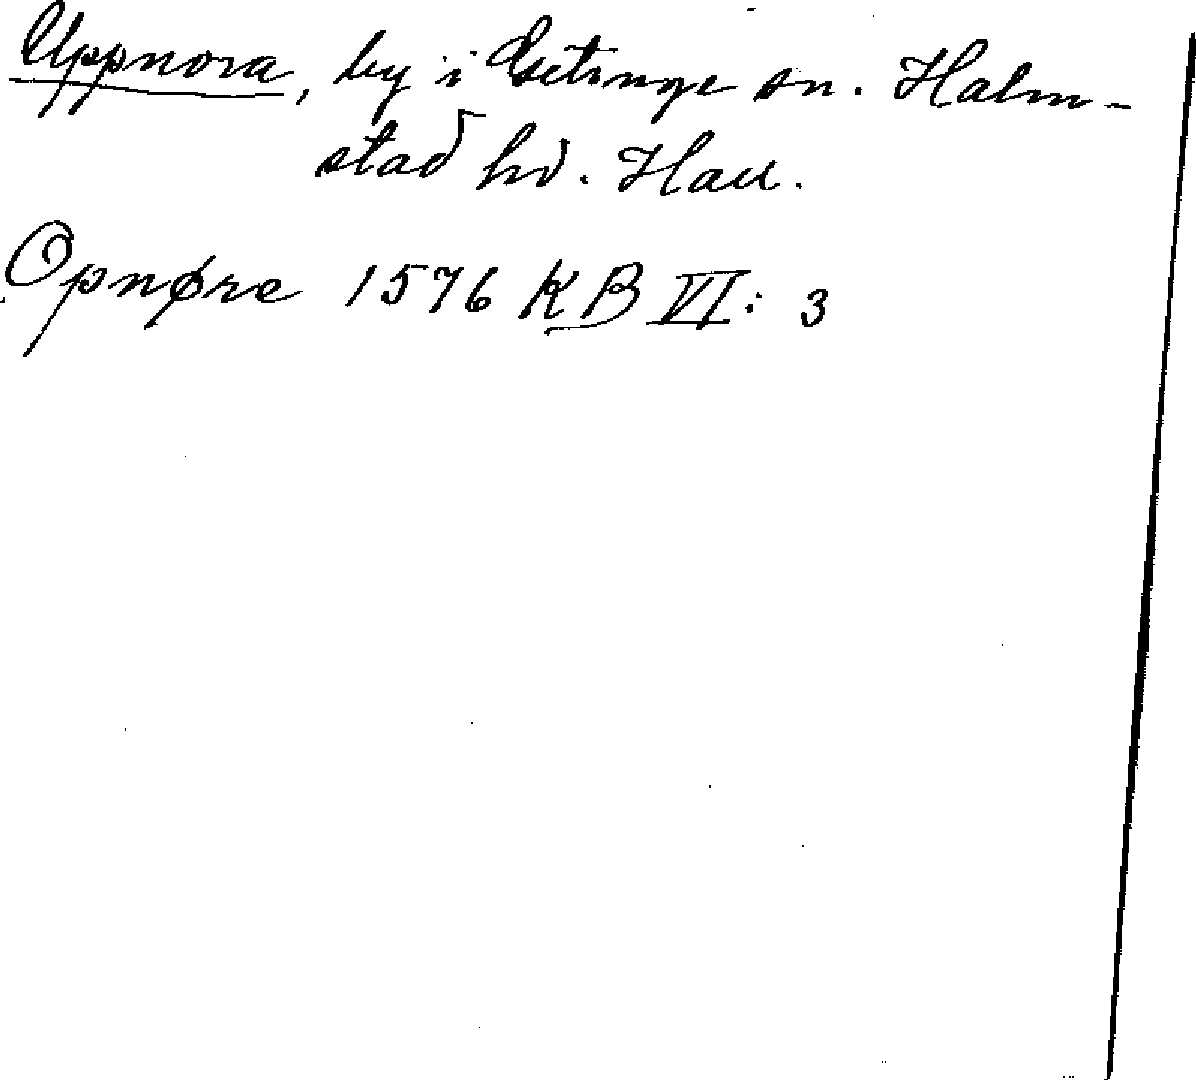 Uppnora, by i Getinge sn. Halm-
stad hd. Hall.
Opnøre 1576 KB VI: 3